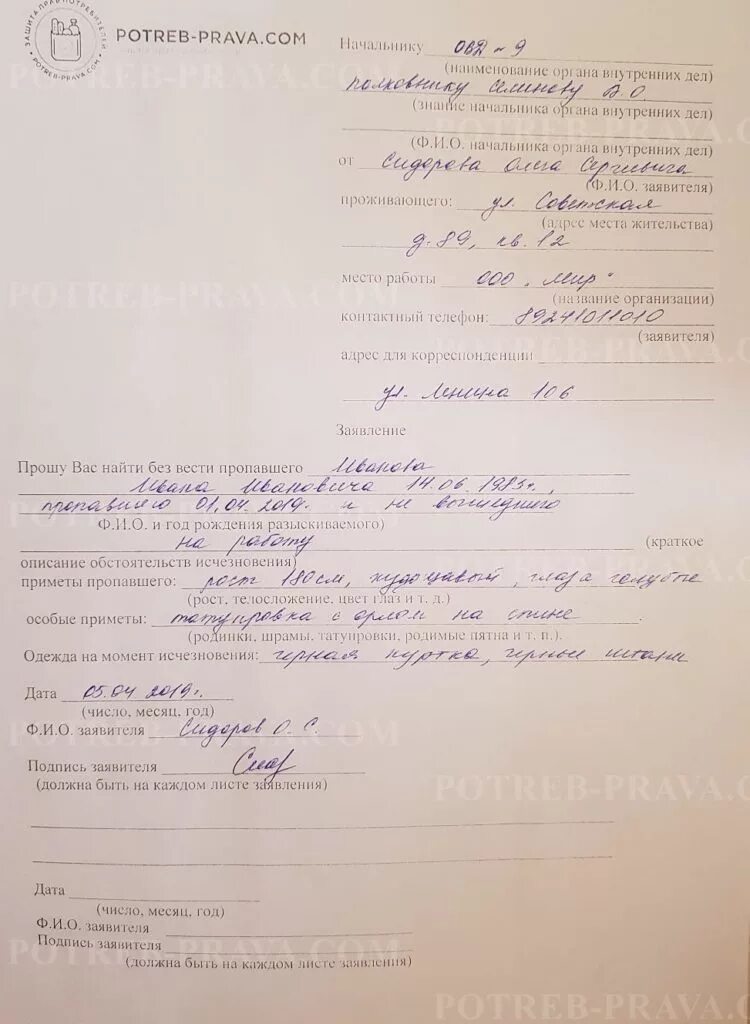 ЗАЩИТА ПРАВ ПОТРЕБИТЕЛЕЙ
POTREB-PRAVA.COM
POTREB-PRAVA.COM
Начальнику ОВД №9
(наименование органа внутренних дел)
полковнику Семинову В.О.
(звание начальника органа внутренних дел)
(Ф.И.О. начальника органа внутренних дел)
от Сидорова Олега Сергеевича
(Ф.И.О. заявителя)
проживающего: ул. Советская
(адрес места жительства)
д. 89, кв. 12
место работы ООО „Мир"
(название организации)
контактный телефон: 89241011010
(заявителя)
адрес для корреспонденции
ул. Ленина 106
Заявление
Прошу Вас найти без вести пропавшего Иванова
Ивана Ивановича 14.06.1983г.,
пропавшего 01.04.2019г. и не вышедшего
Ф.И.О. и год рождения разыскиваемого)
на работу (краткое
описание обстоятельств исчезновения)
приметы пропавшего: рост 180см, худощавый, глаза голубые
(рост, телосложение, цвет глаз и т. д.)
особые приметы: татуировка с орлом на спине.
(родинки, шрамы, татуировки, родимые пятна и т. п.).
Одежда на момент исчезновения: черная куртка, черные штаны
Дата 05.04 2019г.
(число, месяц, год)
Ф.И.О. заявителя Сидоров О. С.
Подпись заявителя
(должна быть на каждом листе заявления)
Дата
(число, месяц, год)
Ф.И.О. заявителя
Подпись заявителя
(должна быть на каждом листе заявления)